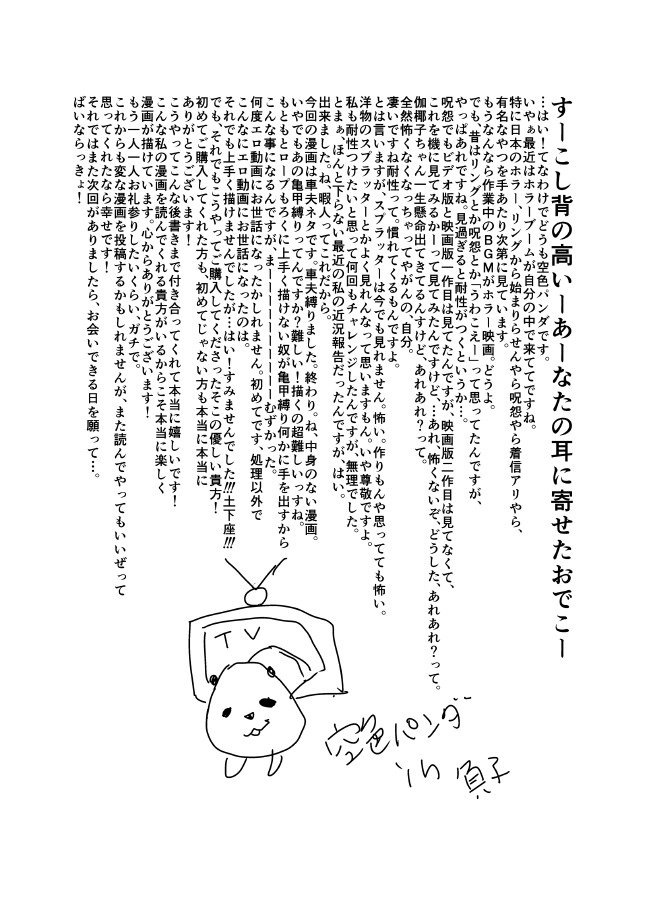 すーこし背の高いーあーなたの耳に寄せたおでこー
…はい！てなわけでどうも空色パンダです。
いやぁ最近はホラーブームが自分の中で来ててですね。
特に日本のホラー、リングから始まりらせんやら呪怨やら着信アリやら、
有名なやつを手あたり次第に見ています。
もうなんなら作業中のＢＧＭがホラー映画。どうよ。
でも、昔はリングとか呪怨とか「うわこえー」って思ってたんですが、
やっぱあれですね。見過ぎると耐性がつくというか…。
呪怨でもビデオ版と映画版一作目は見てたんですが、映画版二作目は見てなくて、
これを機に見てみるかーって見てみたんですけど…あれ、怖くないぞ、どうした、あれあれ？って。
伽椰子ちゃん一生懸命出てきてるんすけど、あれあれ？って。
全然怖くなくなっちゃってやがんの自分。
凄いですね耐性って。慣れてくるもんですよ。
とは言いますが、スプラッターは今でも見れません。怖い。作りもんや思ってても怖い。
洋物のスプラッターとかよく見れんなって思いますもん。いや尊敬ですよ。
私も耐性つけたいと思って何回もチャレンジしたんですが、無理でした。
とまぁ、ほんと下らない最近の私の近況報告だったんですが、はい。
出来ました。ね、暇人ってこれだから。
今回の漫画は車夫ネタです。車夫縛りました。終わり。ね、中身のない漫画。
いやでもあの亀甲縛りってんですか？難しい！描くの超難しいっすね。
もともとロープもろくに上手く描けない奴が亀甲縛り何かに手を出すから
こんな事になるんですが、まーーーーーーーーむずかった。
何度エロ動画にお世話になったかしれません。初めてです、処理以外で
こんなにエロ動画にお世話になったのは。
それでも上手く描けませんでしたが…はい！すみませんでした!!!土下座!!!
でも、それでもこうやってご購入してくださったそこの優しい貴方！
初めてご購入してくれた方も、初めてじゃない方も本当に本当に
ありがとうございます！
こうやってこんな後書きまで付き合ってくれて本当に嬉しいです！
こんな私の漫画を読んでくれる貴方がいるからこそ本当に楽しく
漫画が描けています。心からありがとうございます！
もう一人一人お礼参りしたいくらい、ガチで。
これからも変な漫画を投稿するかもしれませんが、また読んでやってもいいぜって
思ってくれたなら幸せです！
それではまた次回がありましたら、お会いできる日を願って…。
ばいならっきょ！
TV
空色パンダ
in 貞子